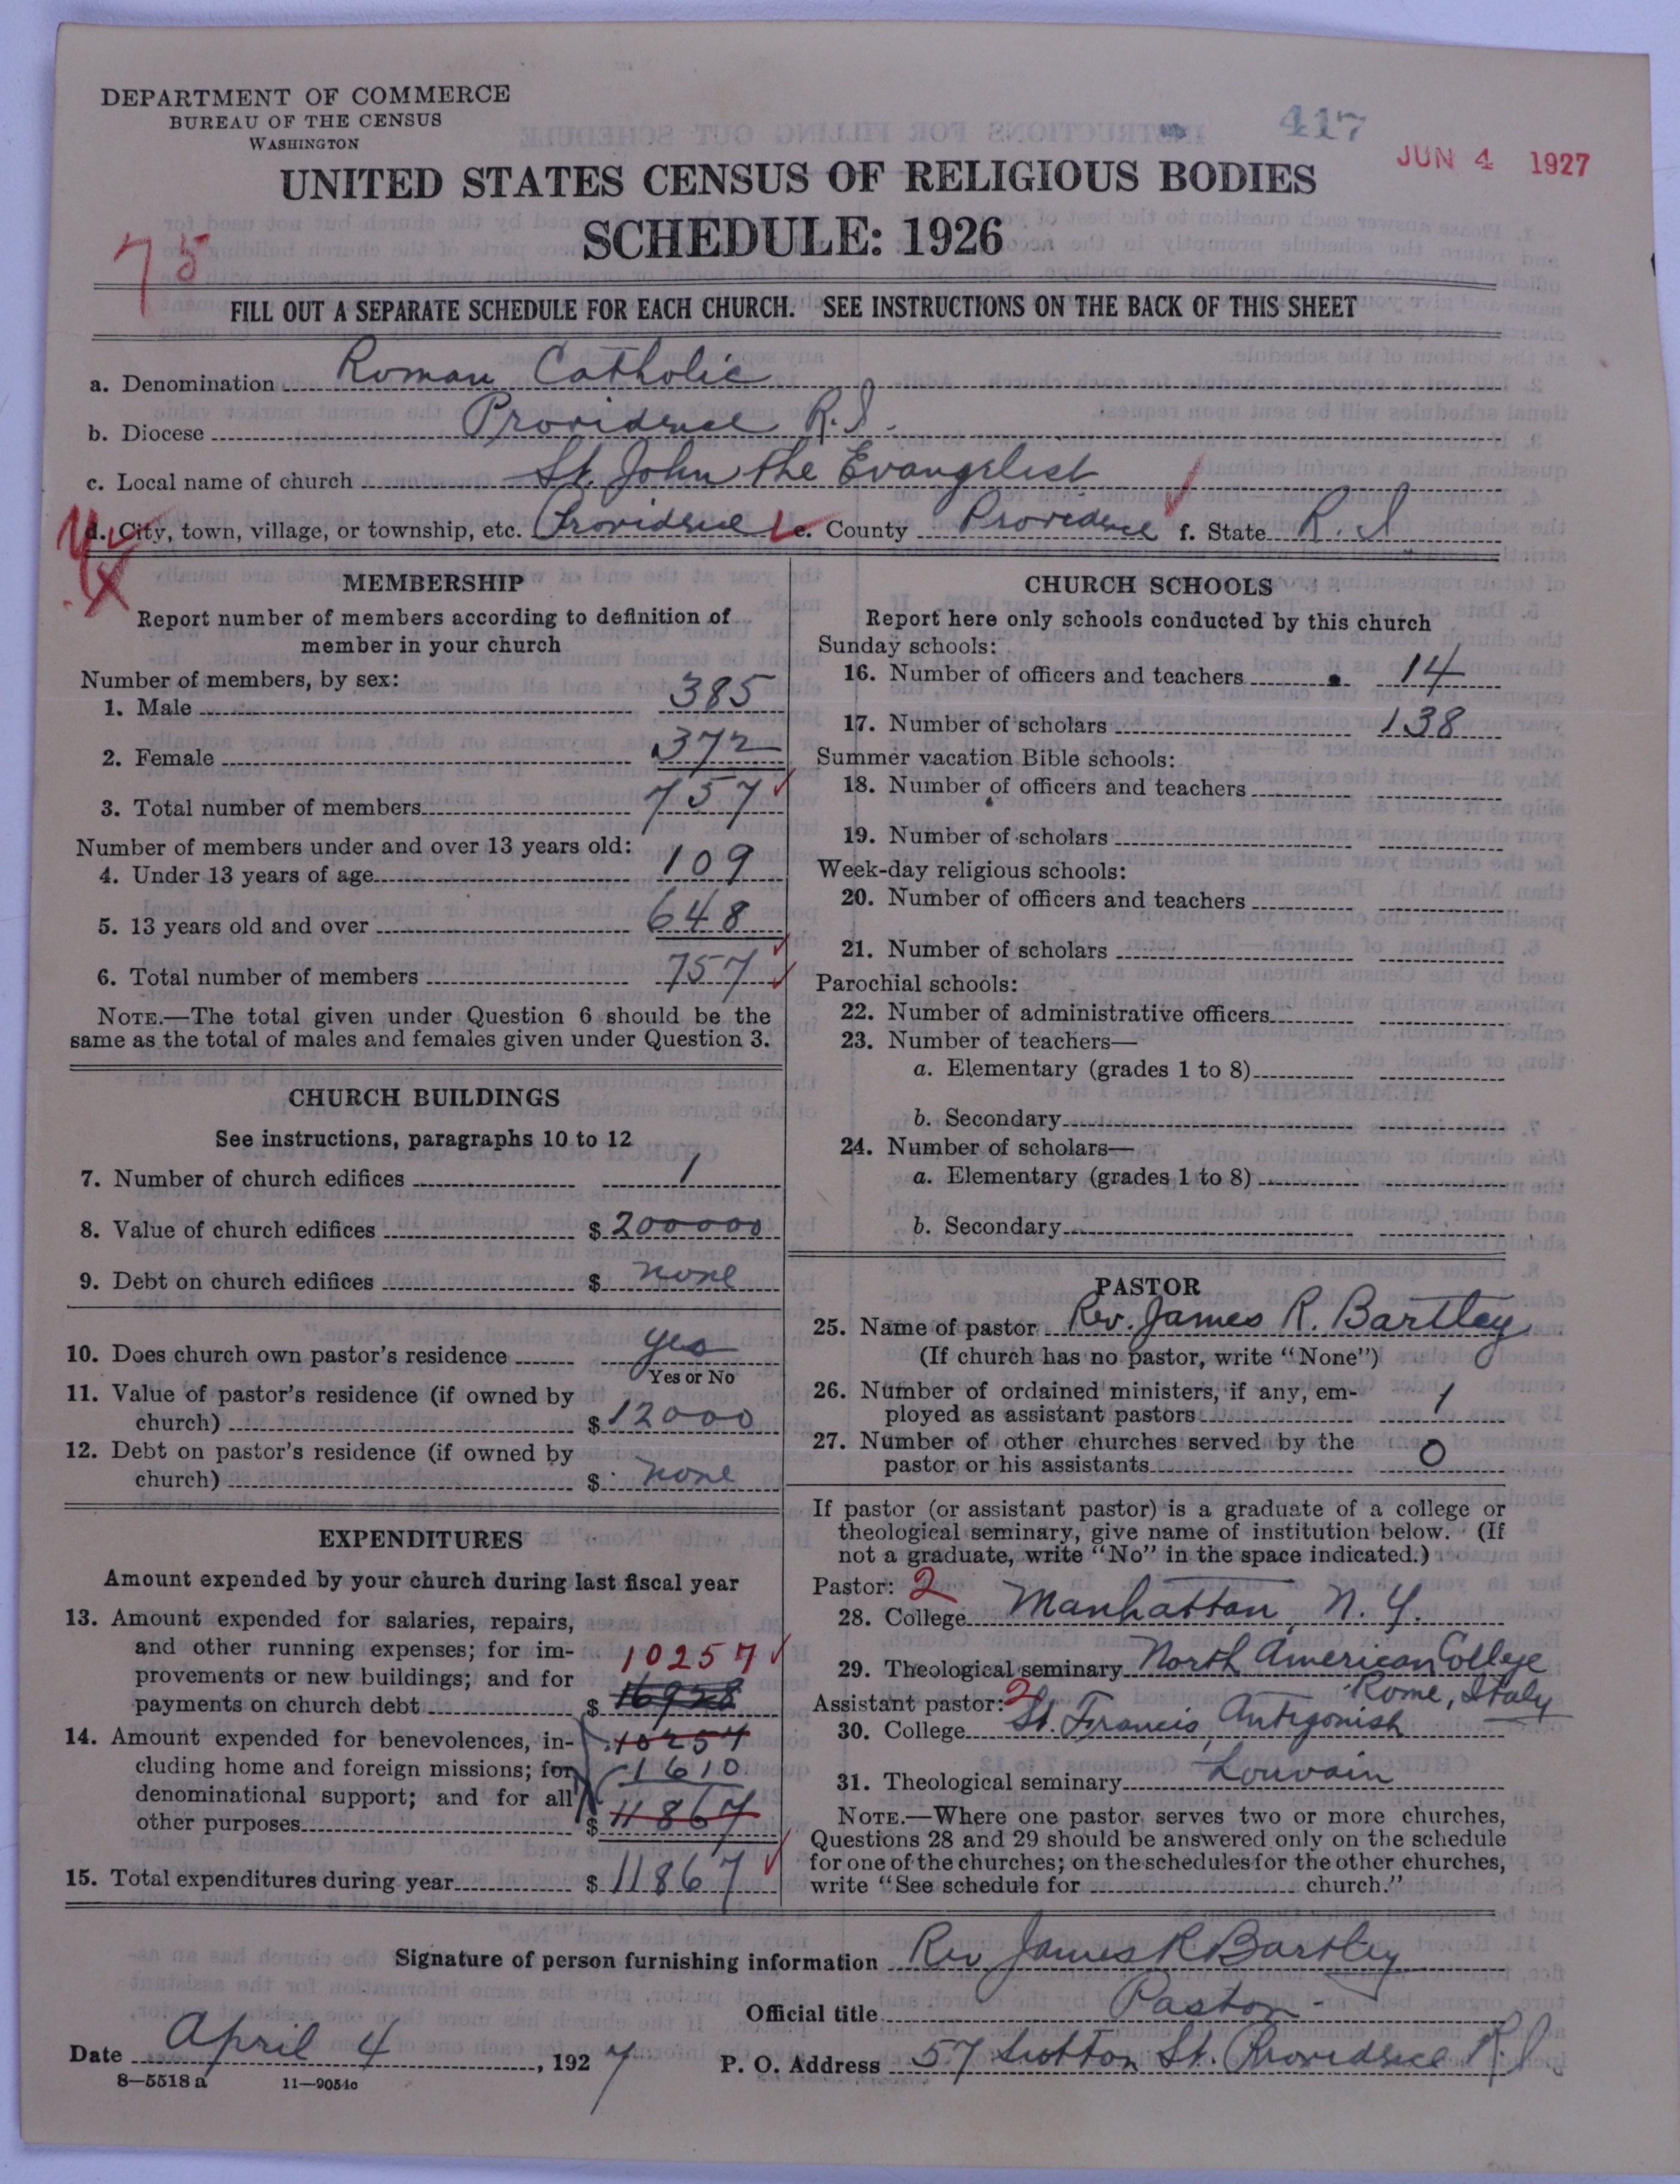 DEPARTMENT OF COMMERCE
BUREAU OF THE CENSUS
WASHINGTON
417
JUN 4 1927
UNITED STATES CENSUS OF RELIGIOUS BODIES
SCHEDULE: 1926
75
FILL OUT A SEPARATE SCHEDULE FOR EACH CHURCH. SEE INSTRUCTIONS ON THE BACK OF THIS SHEET
a. Denomination Roman Catholic
b. Diocese Providence R.I.
c. Local name of church St. John the Evangelist
d. City, town, village, or township, etc. Providence e. County Providence f. State R.I
MEMBERSHIP
Report number of members according to definition of
member in your church
Number of members, by sex:
1. Male 385
2. Female 372
3. Total number of members 757
Number of members under and over 13 years old:
4. Under 13 years of age 109
5. 13 years old and over 648
6. Total number of members 757
NOTE.—The total given under Question 6 should be the
same as the total of males and females given under Question 3.
CHURCH BUILDINGS
See instructions, paragraphs 10 to 12
7. Number of church edifices 1
8. Value of church edifices $ 200000
9. Debt on church edifices $ none
10. Does church own pastor's residence yes
Yes or No
11. Value of pastor's residence (if owned by
church) $ 12000
12. Debt on pastor's residence (if owned by
church) $ none
EXPENDITURES
Amount expended by your church during last fiscal year
13. Amount expended for salaries, repairs,
and other running expenses; for im-
provements or new buildings; and for 10257
payments on church debt $
14. Amount expended for benevolences, in- 10257
cluding home and foreign missions; for 1610
denominational support; and for all
other purposes $ 11867
15. Total expenditures during year $ 11867
CHURCH SCHOOLS
Report here only schools conducted by this church
Sunday schools:
16. Number of officers and teachers 14
17. Number of scholars 138
Summer vacation Bible schools:
18. Number of officers and teachers
19. Number of scholars
Week-day religious schools:
20. Number of officers and teachers
21. Number of scholars
Parochial schools:
22. Number of administrative officers
23. Number of teachers—
a. Elementary (grades 1 to 8)
b. Secondary
24. Number of scholars—
a. Elementary (grades 1 to 8)
b. Secondary
PASTOR
25. Name of pastor Rev. James R. Bartley
(If church has no pastor, write "None")
26. Number of ordained ministers, if any, em-
ployed as assistant pastors 1
27. Number of other churches served by the
pastor or his assistants 0
If pastor (or assistant pastor) is a graduate of a college or
theological seminary, give name of institution below. (If
not a graduate, write "No" in the space indicated.)
Pastor: 2
28. College Manhattan, N.Y.
29. Theological seminary North American College
Rome, Italy
Assistant pastor: 2
30. College St. Francis, Antigonish
31. Theological seminary Louvain
NOTE.—Where one pastor serves two or more churches,
Questions 28 and 29 should be answered only on the schedule
for one of the churches; on the schedules for the other churches,
write "See schedule for church."
Signature of person furnishing information Rev James R Bartley
Official title Pastor
Date April 4, 1927
P. O. Address 57 Sutton St. Providence R.I
8—5518 a 11—9054c